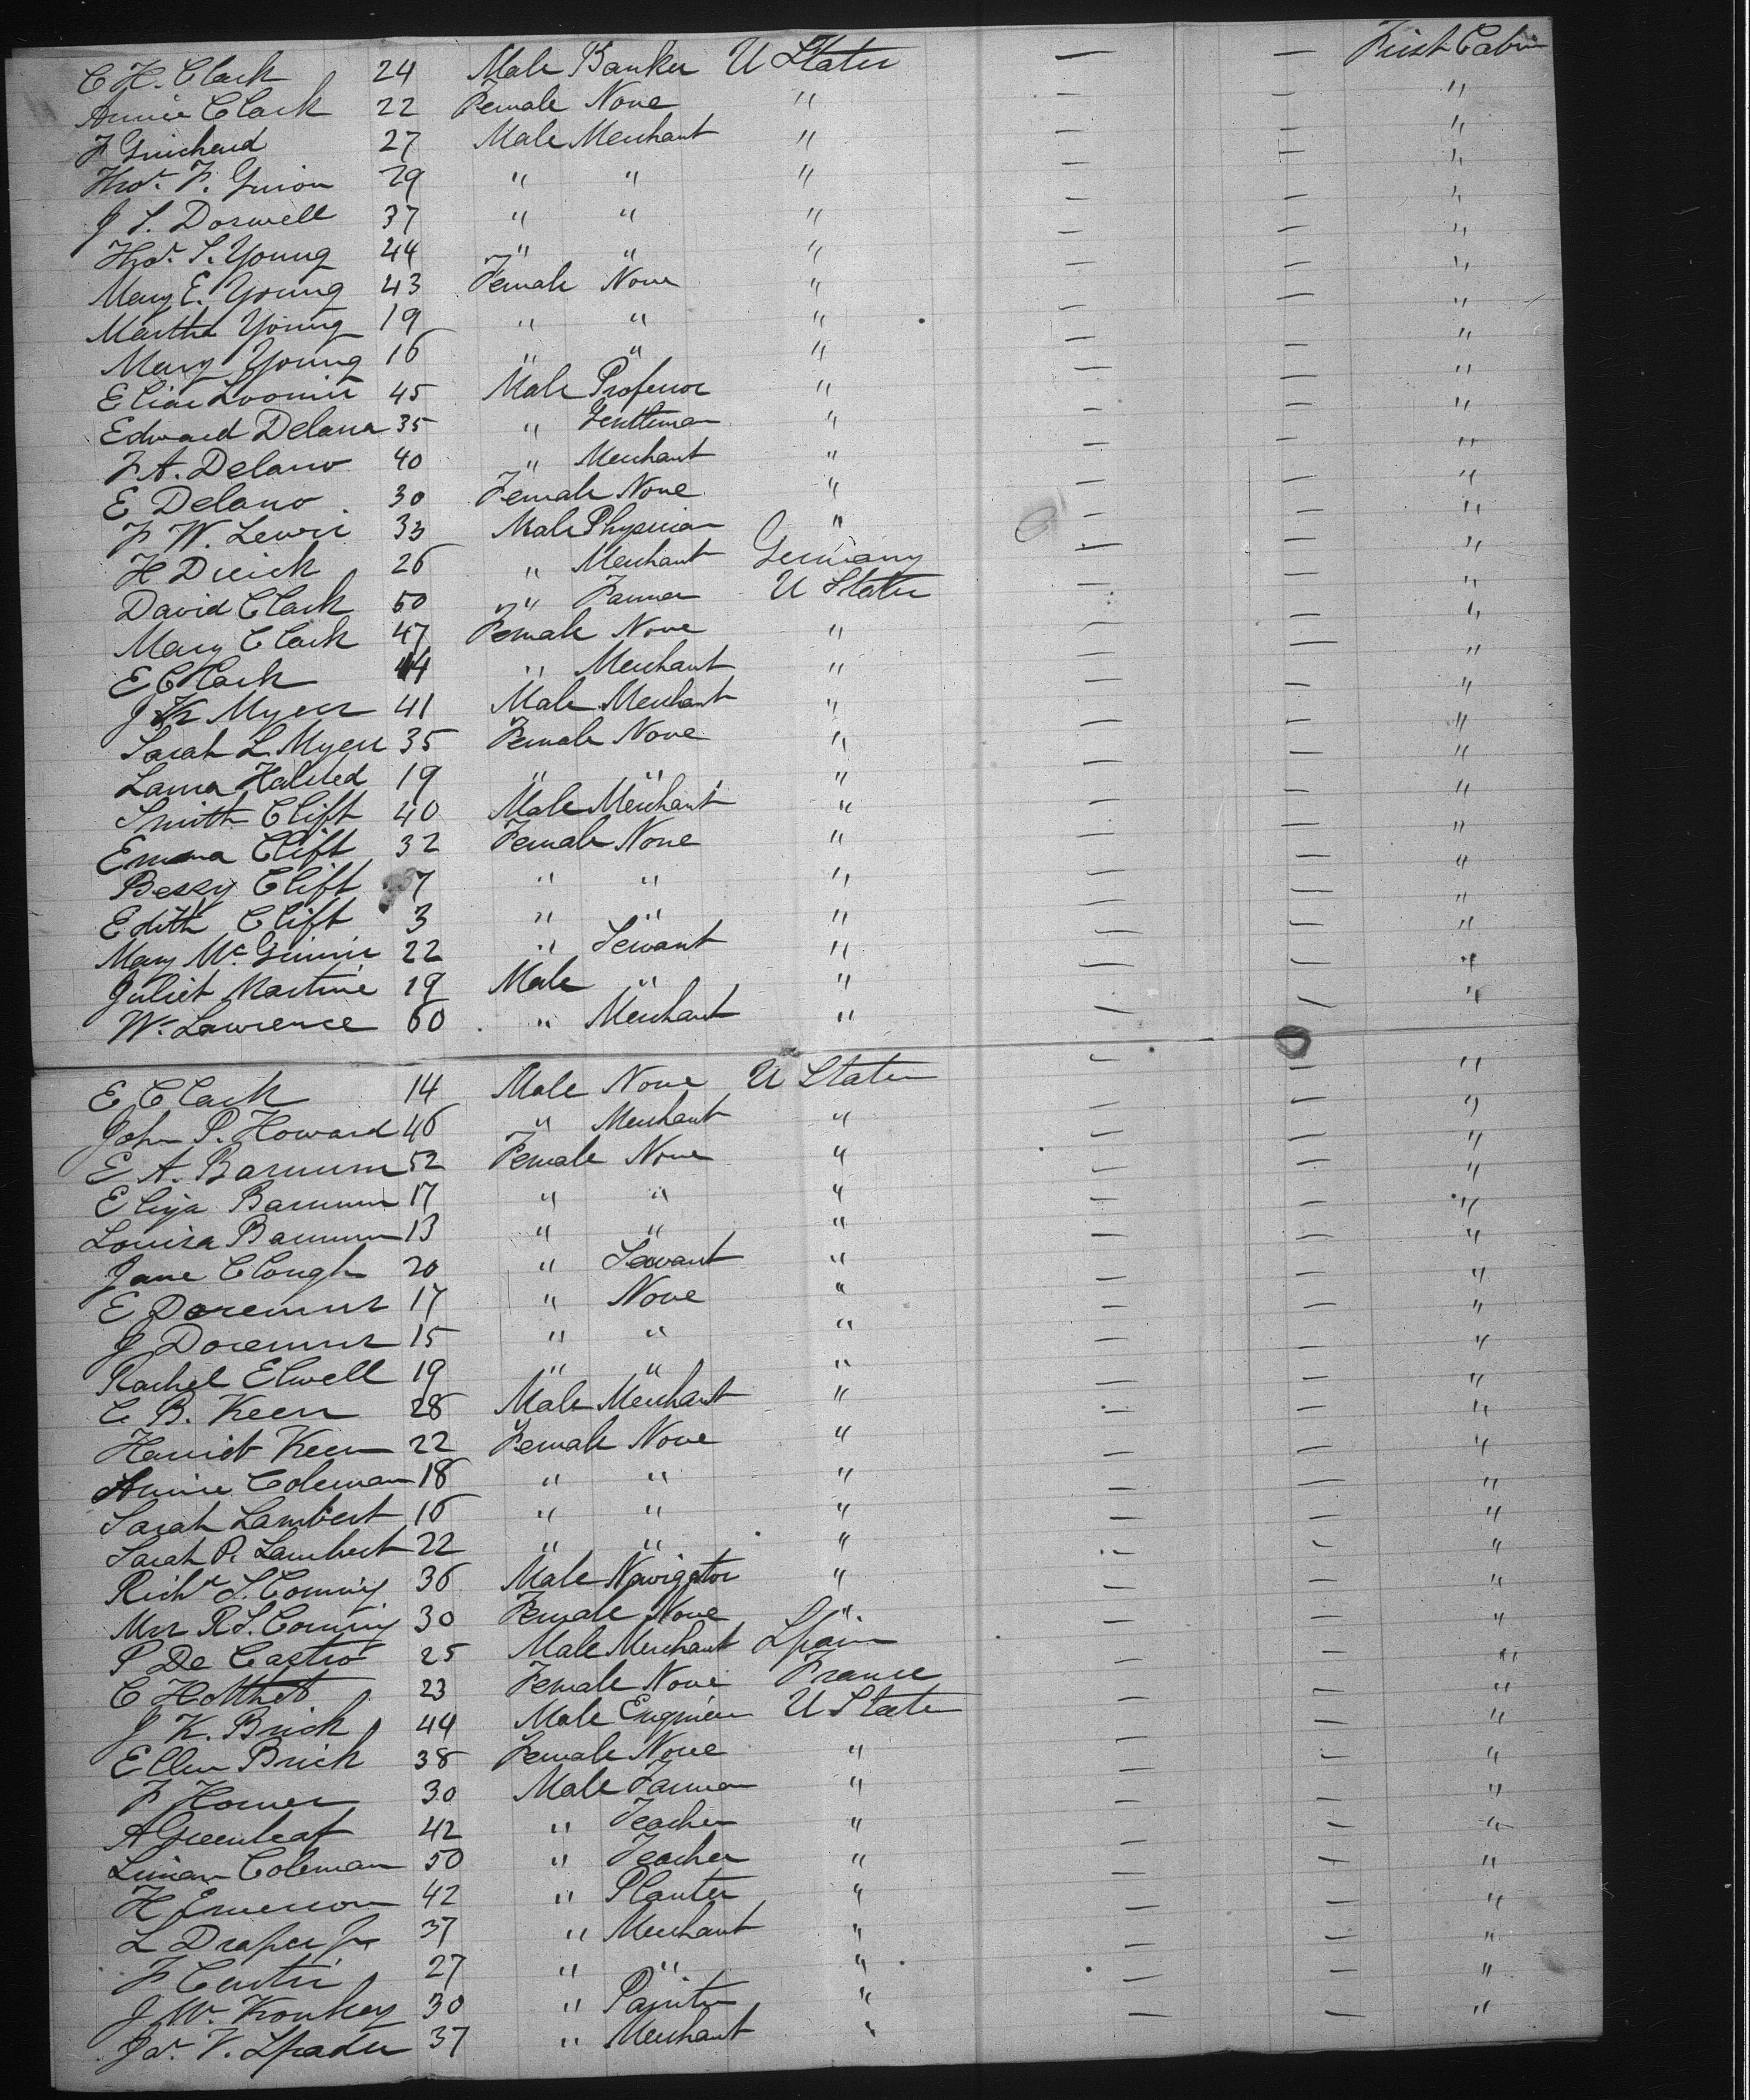 C H. Clark 24 Male Banker U States — — First Cabin
Annie Clark 22 Female None " — — "
F Guichard 27 Male Merchant " — — "
Thos. F. Guion 29 " " " — — "
J S. Doswell 37 " " " — — "
Thos. S. Young 44 " " " — — "
Mary E. Young 43 Female None " — — "
Martha Young 19 " " " — — "
Mary Young 16 " " " — — "
Elias Loomis 45 Male Professor " — — "
Edward Delana 35 " Gentleman " — — "
F A. Delano 40 " Merchant " — — "
E Delano 30 Female None " — — "
F W. Lewis 33 Male Physician " — — "
H 26 " Merchant Germany — — "
David Clark 50 " Farmer U States — — "
Mary Clark 47 Female None " — — "
E Clark 44 " Merchant " — — "
J K Myers 41 Male Merchant " — — "
Sarah L Myers 35 Female None " — — "
Laura Halsted 19 " " " — — "
Smith Clift 40 Male Merchant " — — "
Emma Clift 32 Female None " — — "
Bessy Clift 7 " " " — — "
Edith Clift 3 " " " — — "
Mary McGinnis 22 " Servant " — — "
Juliet Martine 19 Male " " — — "
Wm Lawrence 60 " Merchant " — — "
E Clark 14 Male None U States — — "
John P. Howard 46 " Merchant " — — "
E A. Barnum 52 Female None " — — "
Eliza Barnum 17 " " " — — "
Louisa Barnum 13 " " " — — "
Jane Clough 20 " Servant " — — "
E Doremus 17 " None " — — "
J Doremus 15 " " " — — "
Rachel Elwell 19 " " " — — "
C B. Keen 28 Male Merchant " — — "
Harriet Keen 22 Female None " — — "
Annie Coleman 18 " " " — — "
Sarah Lambert 16 " " " — — "
Sarah P. Lambert 22 " " " — — "
Richd S. Coming 36 Male Navigator " — — "
Mrs R S. Coming 30 Female None " — — "
P De Castro 25 Male Merchant Spain — — "
C 23 Female None France — — "
J K. Brick 44 Male Engineer U States — — "
Ellen Brick 38 Female None " — — "
F Homer 30 Male Farmer " — — "
A Greenleaf 42 " Teacher " — — "
Liman Coleman 50 " Teacher " — — "
H Emerson 42 " Planter " — — "
L Draper Jr 37 " Merchant " — — "
F Curtis 27 " " " — — "
J W. Konkey 30 " Painter " — — "
Jas. V. Spader 37 " Merchant " — — "